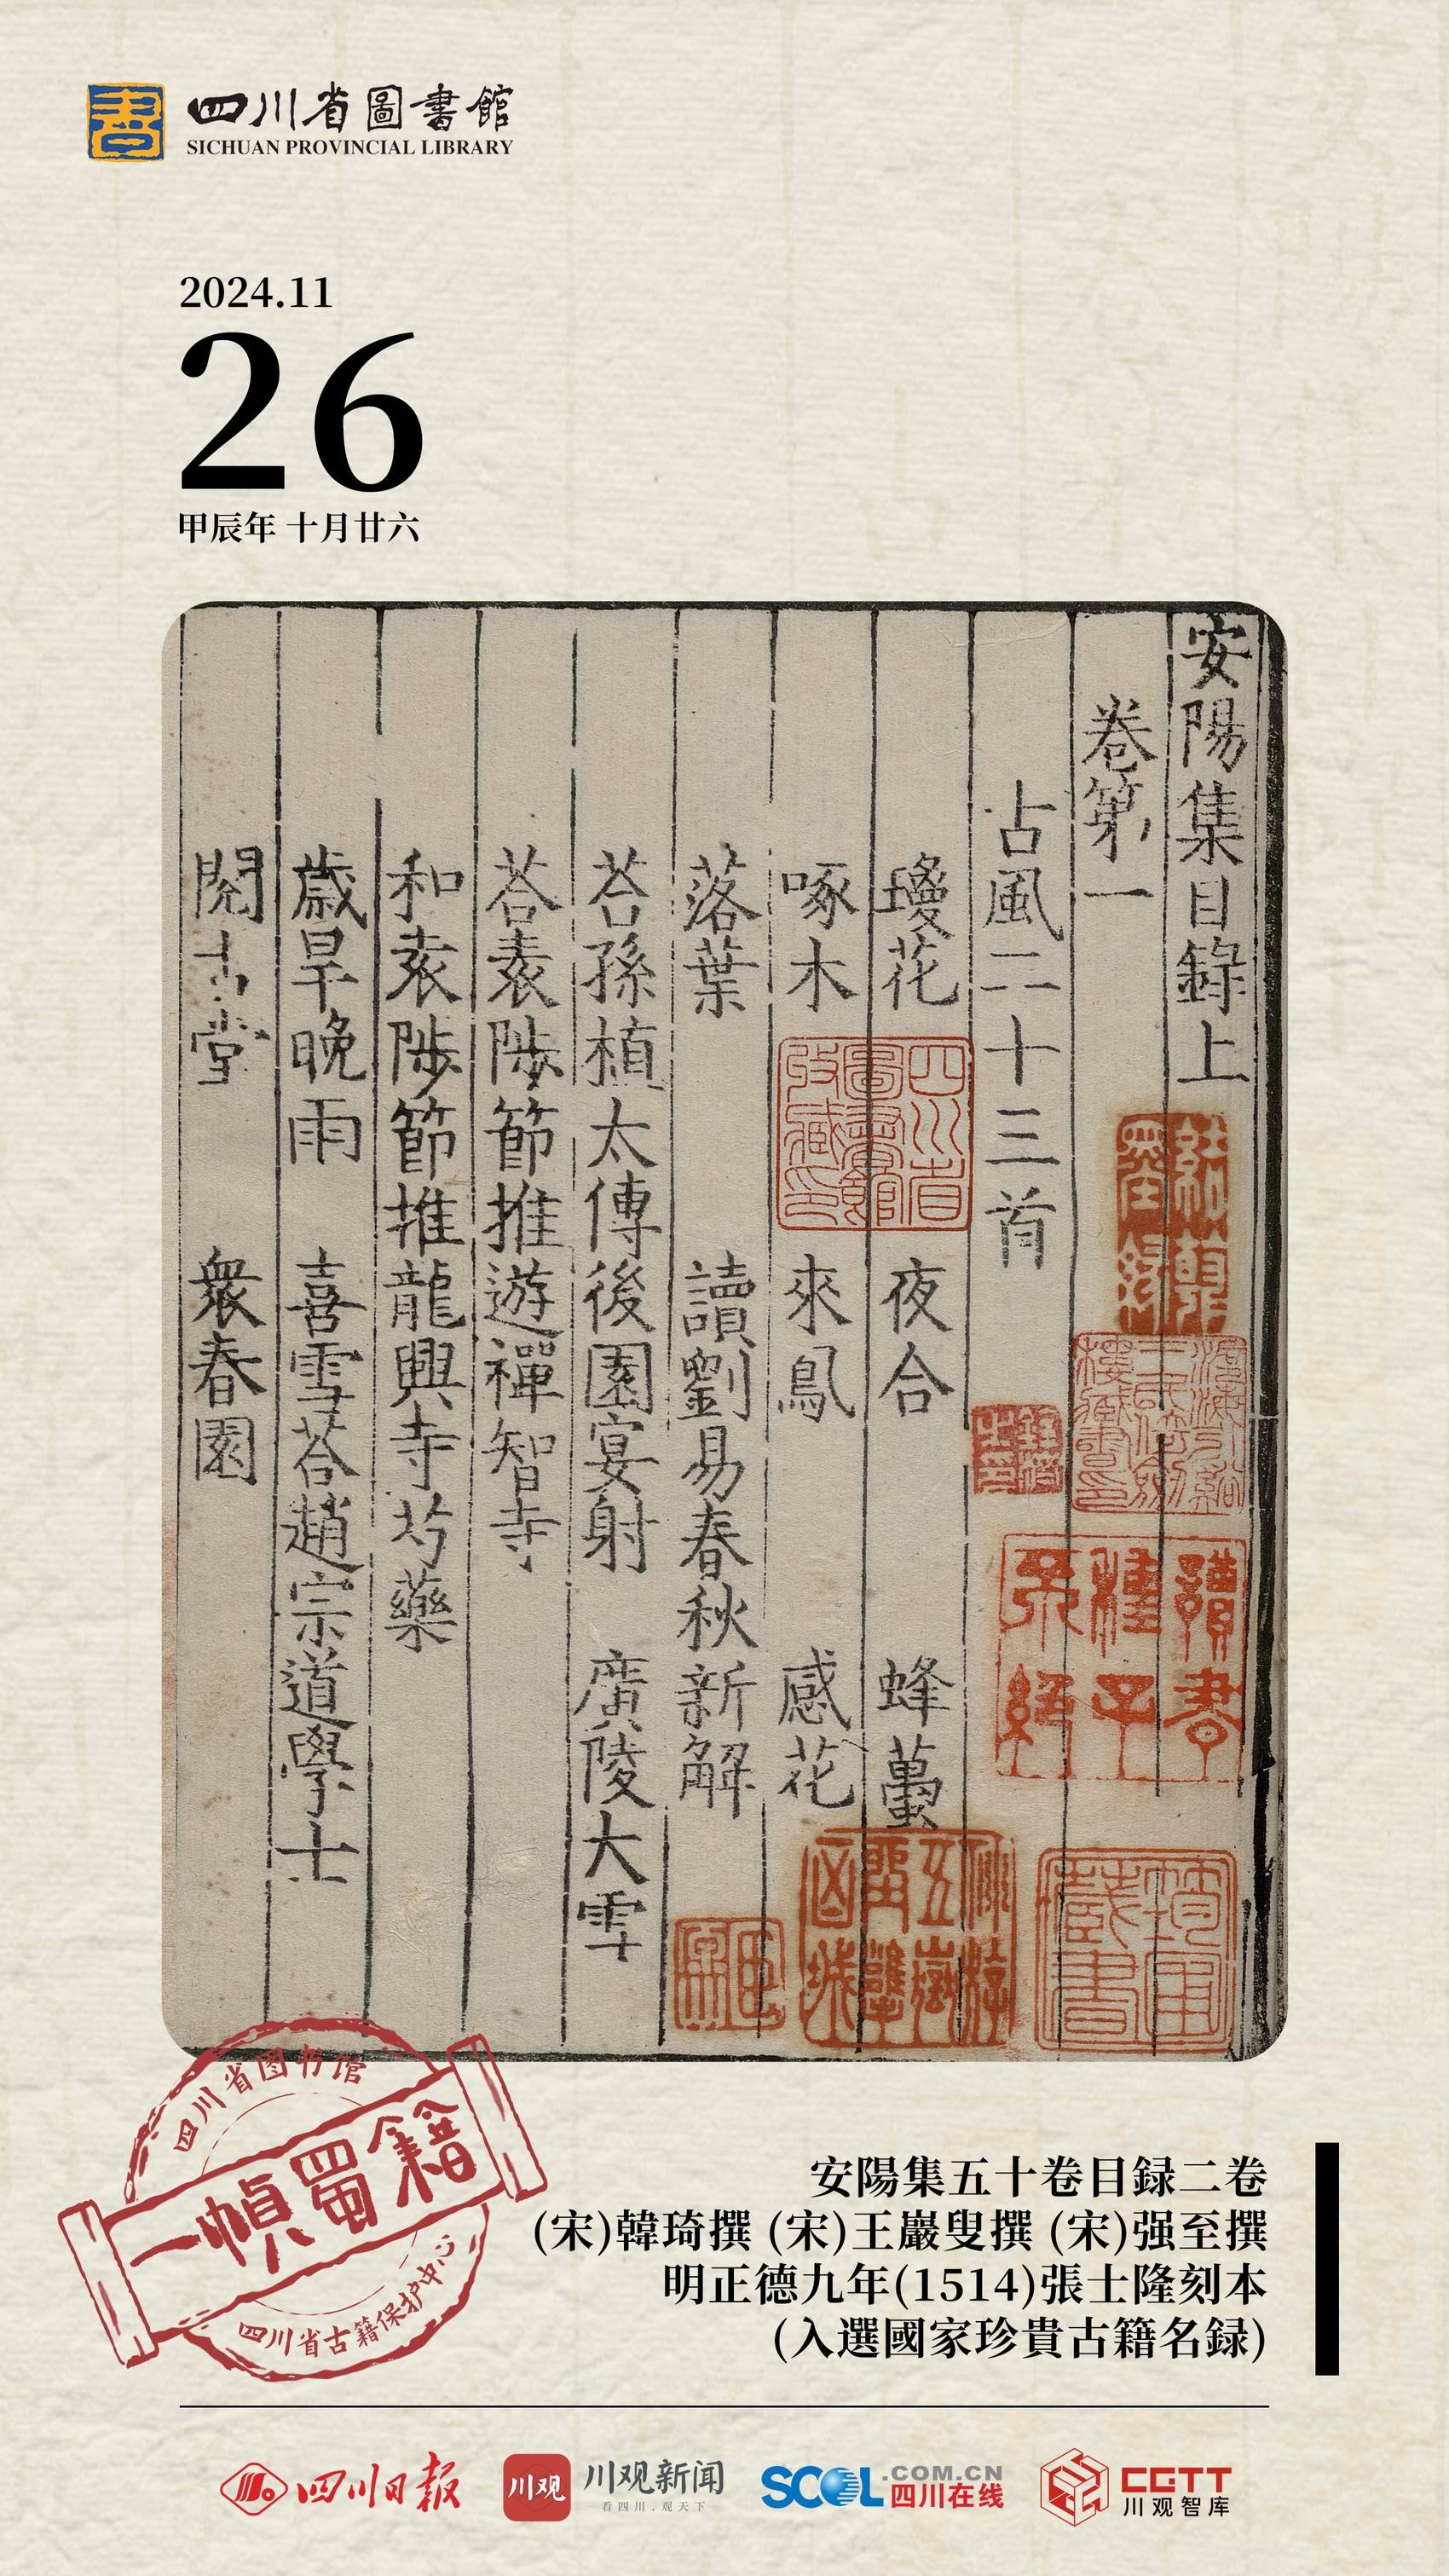 四川省圖書館
SICHUAN PROVINCIAL LIBRARY
2024.11
26
甲辰年 十月廿六
安陽集目錄上
卷第一
古風二十三首
瓊花 夜合 蜂蠆
啄木 來鳳 感花
落葉 讀劉易春秋新解
荅孫植太傅後園宴射 廣陵大雪
荅袁陟節推遊禪智寺
和袁陟節推龍興寺芍藥
歲旱晚雨 喜雪荅趙宗道學士
閱古堂 衆春園
四川省圖書館收藏印
四川省图书馆
一幀蜀籍
四川省古籍保护中心
安陽集五十卷目録二卷
(宋)韓琦撰 (宋)王巖叟撰 (宋)强至撰
明正德九年(1514)張士隆刻本
(入選國家珍貴古籍名録)
四川日报
川观
川观新闻
看四川，观天下
SCOL.COM.CN
四川在线
CGTT
川观智库